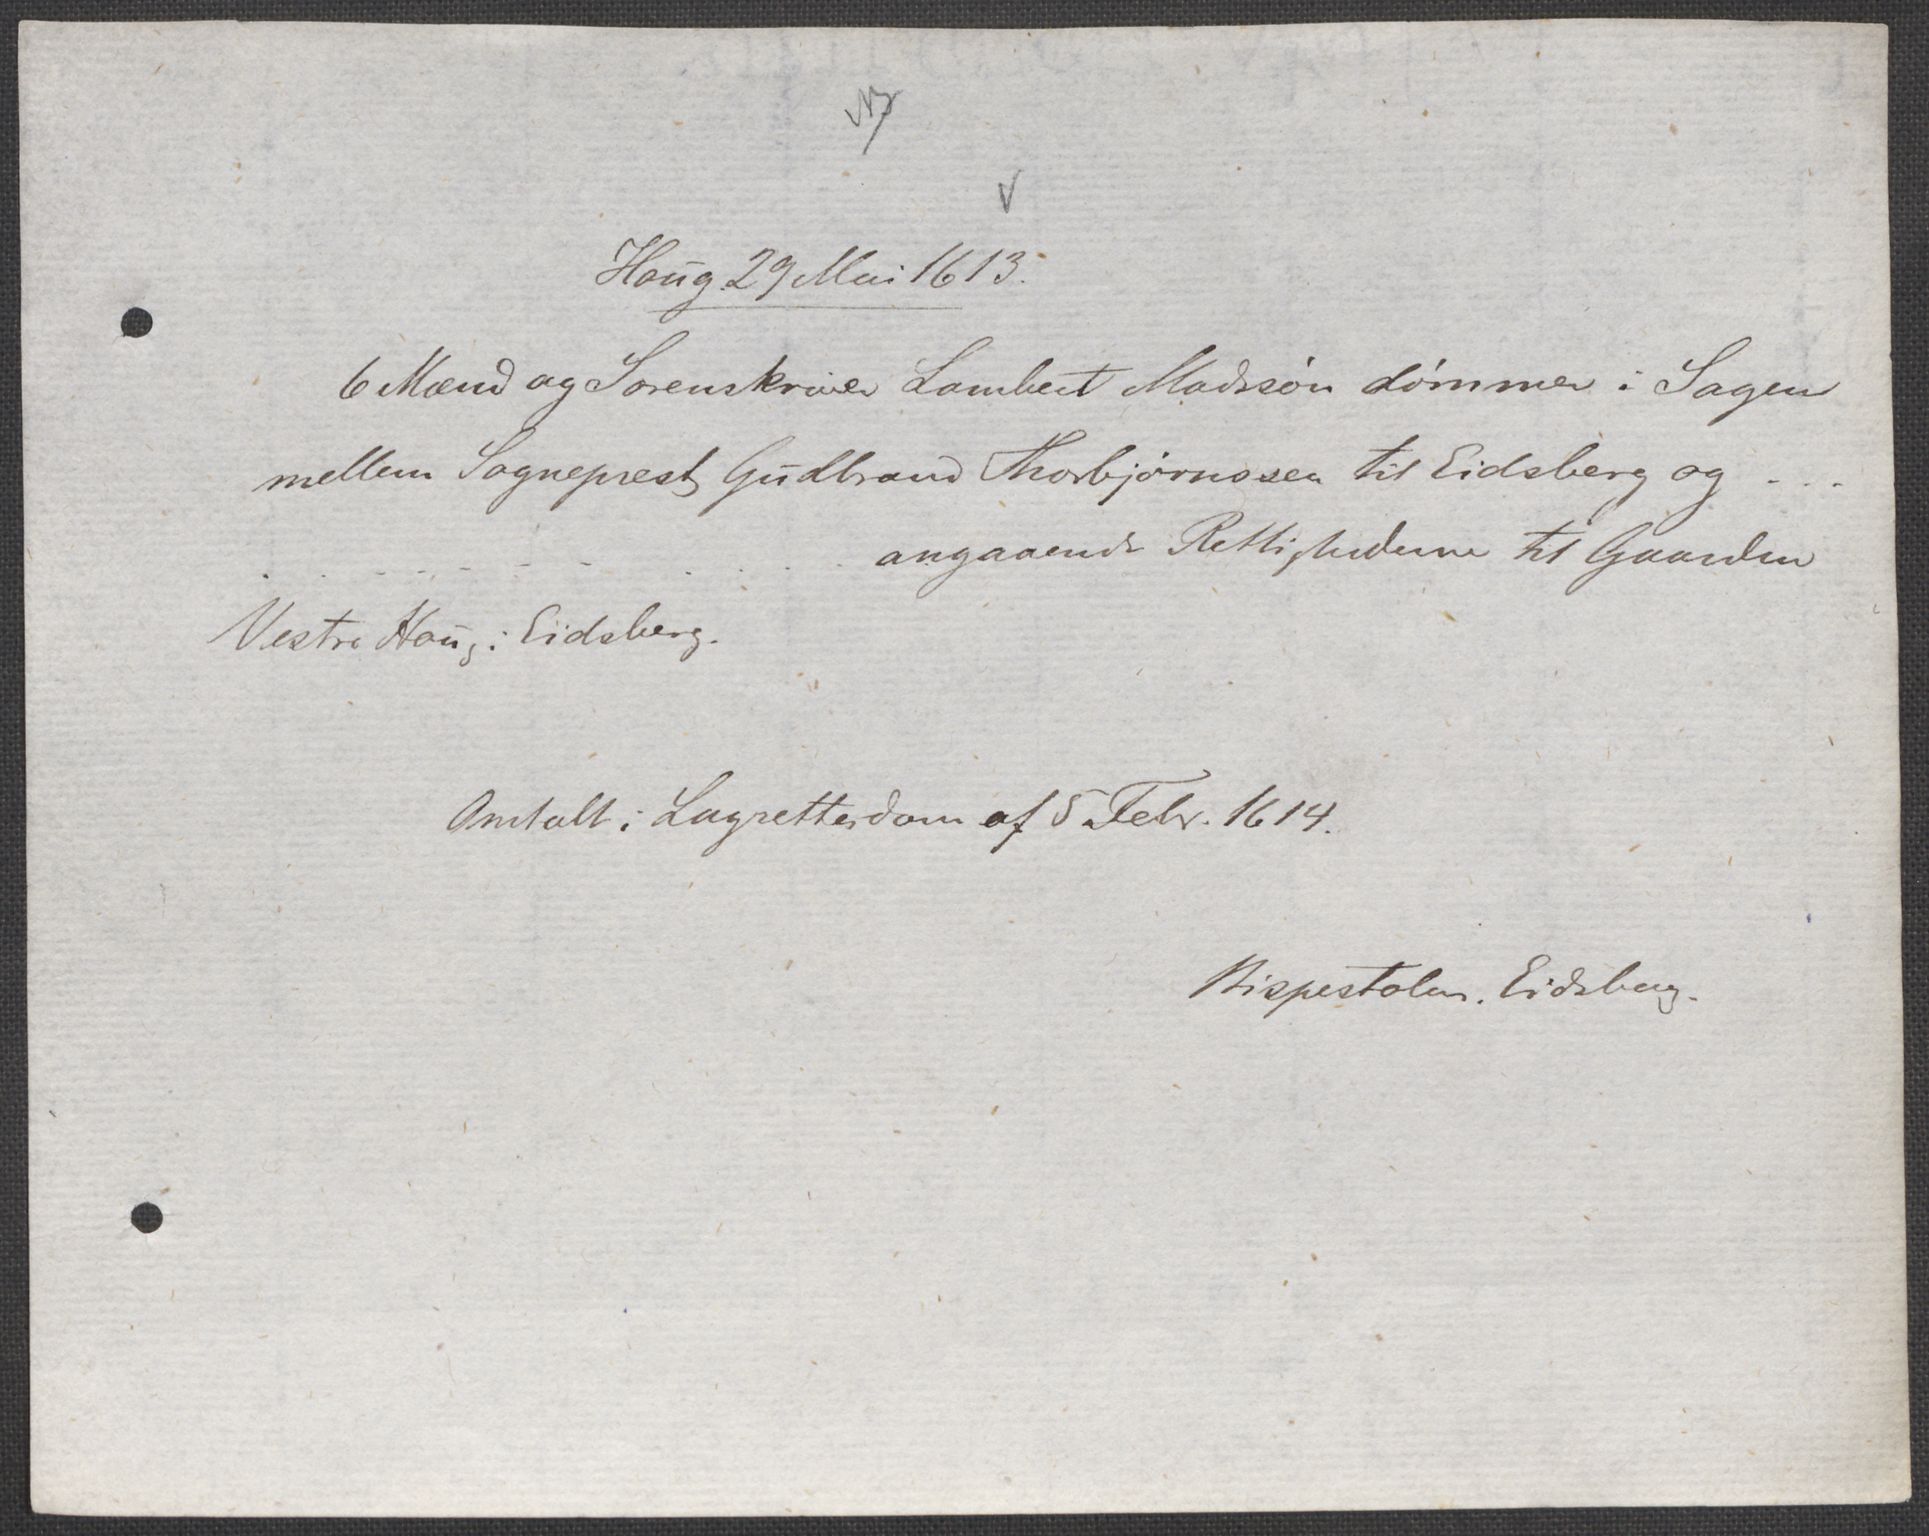 NB
Haug 29 Mai 1613.
6 Mænd og Sorenskriver Lambert Madssøn dømmer i Sagen
mellem Sogneprest Gudbrand Thorbjørnssen til Eidsberg og ...
angaaende Rettighederne til Gaarden
Vestre Haug i Eidsberg.
Omtalt i Lagrettesdom af 5 Febr. 1614.
Bispestolen. Eidsberg.